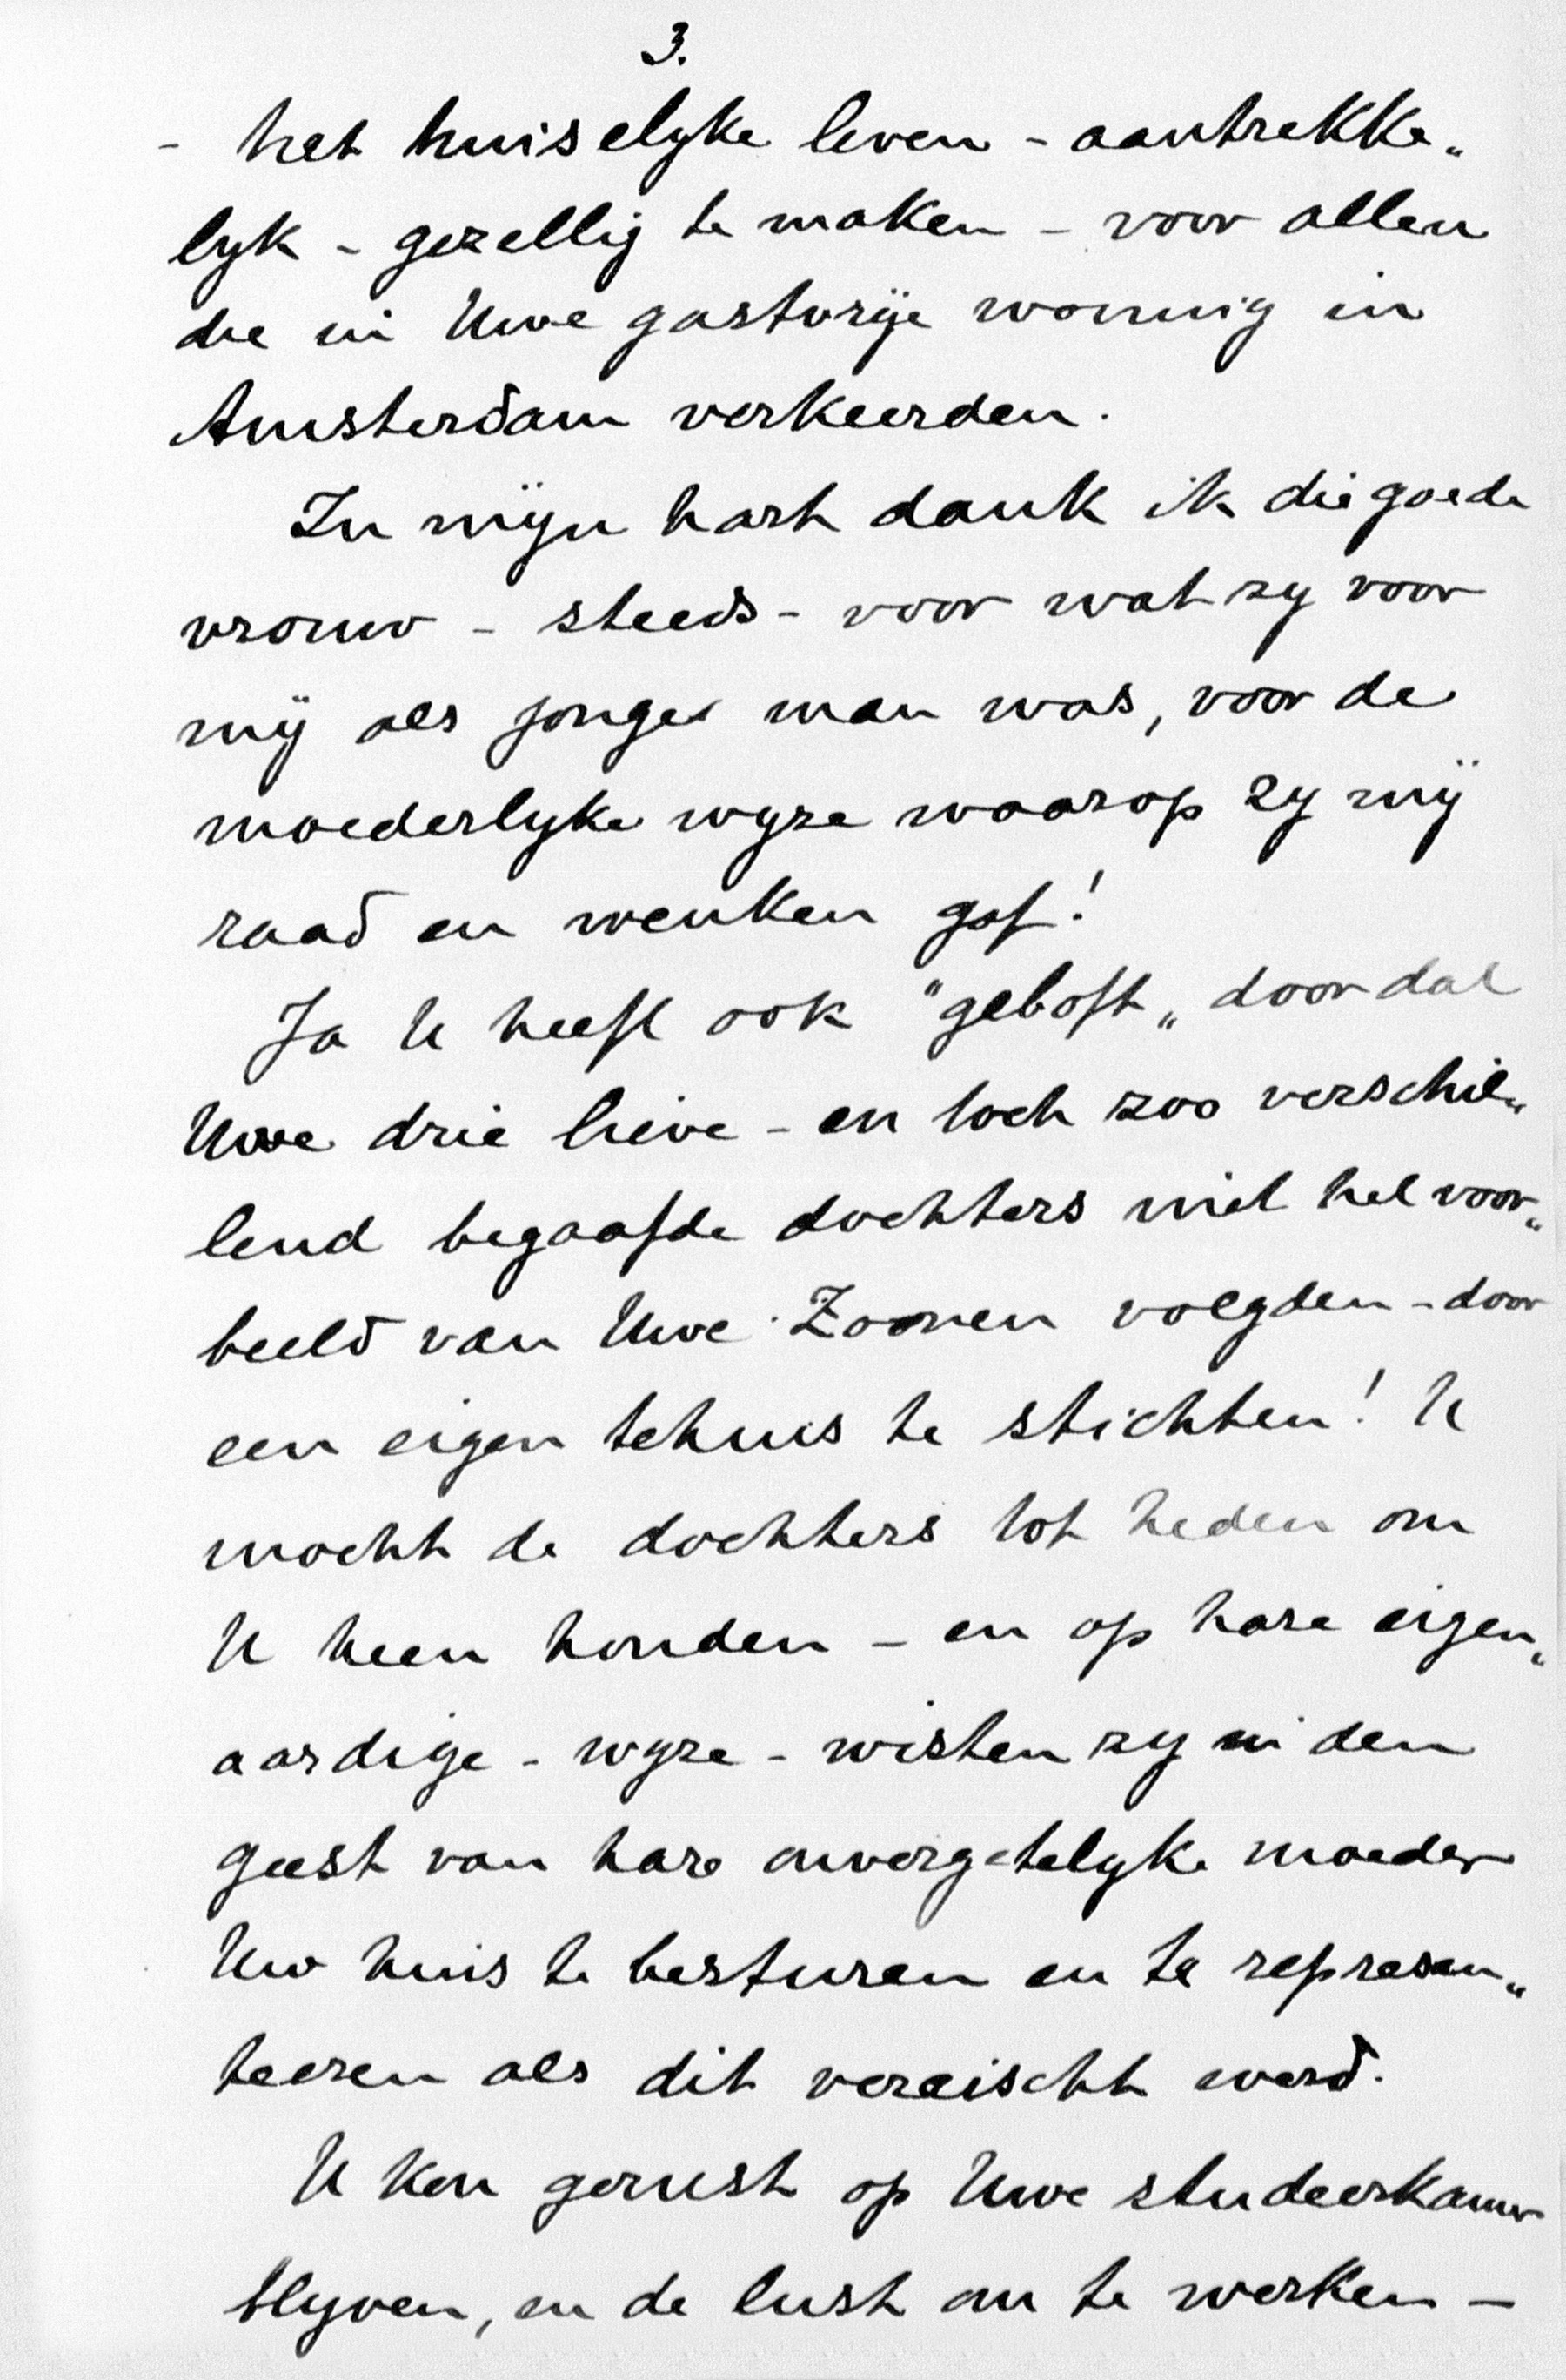 3.
- het huiselyke leven - aantrekke„
lyk - gezellig te maken - voor allen
die in Uwe gastvrÿe woning in
Amsterdam verkeerden.
In mÿn hart dank ik die goede
vrouw - steeds - voor wat zy voor
mÿ als jonge man was, voor de
moederlyke wyze waarop zy mÿ
raad en wenken gaf!
Ja U heeft ook "geboft„ doordat
Uwe drie lieve - en toch zoo verschil„
lend begaafde dochters niet het voor„
beeld van Uwe Zoonen volgden - door
een eigen tehuis te stichten! U
mocht de dochters tot heden om
U heen houden - en op hare eigen„
aardige - wyze - wisten zy in den
geest van hare onvergetelyke moeder
Uw huis te besturen en te represen„
teeren als dit vereischt werd.
U kon gerust op Uwe studeerkamer
blyven, en de lust om te werken -